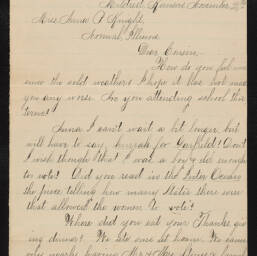 Mildred, Kansas November 29th
Miss Anna P. Knight,
Normal, Illinois
Dear Cousin,
How do you feel
since the cold weather? I hope it has not made
you any worse. Are you attending school this
term?
Anna I can't wait a bit longer, but
will have to say, Hurrah for Garfield! Don't
I wish though that I was a boy & old enough
to vote! Did you read in the Inter Ocean
the piece telling how many States there were
that allowed the women to vote?
Where did you eat your Thanks giv
ing dinner? We ate ours at home. We came
only nearly having Mr & Mrs